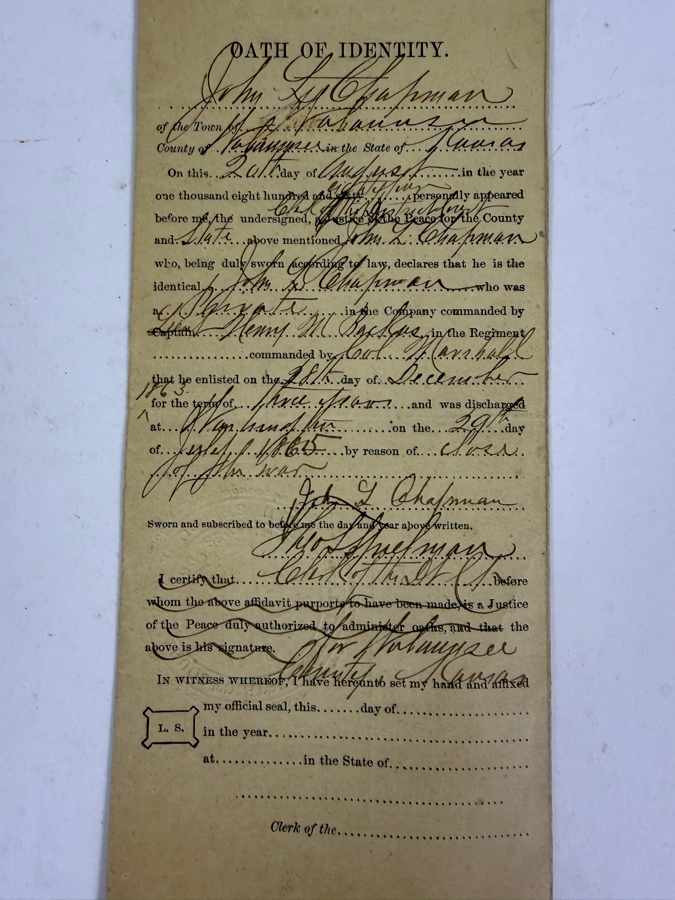 OATH OF IDENTITY.
John L. Chapman
of the Town of Wabaunsee
County of Wabaunsee in the State of Kansas
On this 20th day of August in the year
one thousand eight hundred and sixty personally appeared
before me, the undersigned, a Justice of the Peace for the County
and State above mentioned John L Chapman
who, being duly sworn according to law, declares that he is the
identical John L Chapman who was
a Private in the Company commanded by
Captain Henry M in the Regiment
commanded by Col Marshall
that he enlisted on the 28th day of December
1863
for the term of three years and was discharged
at on the 29th day
of Sept 1865 by reason of close
of the war
L Chapman
Sworn and subscribed to before me the day and year above written.
I certify that Clerk of the Dt Ct before
whom the above affidavit purports to have been made, is a Justice
of the Peace duly authorized to administer oaths, and that the
above is his signature. for Wabaunsee
County Kansas
IN WITNESS WHEREOF, I have hereunto set my hand and affixed
my official seal, this.......day of
L. S.
in the year
at in the State of
Clerk of the